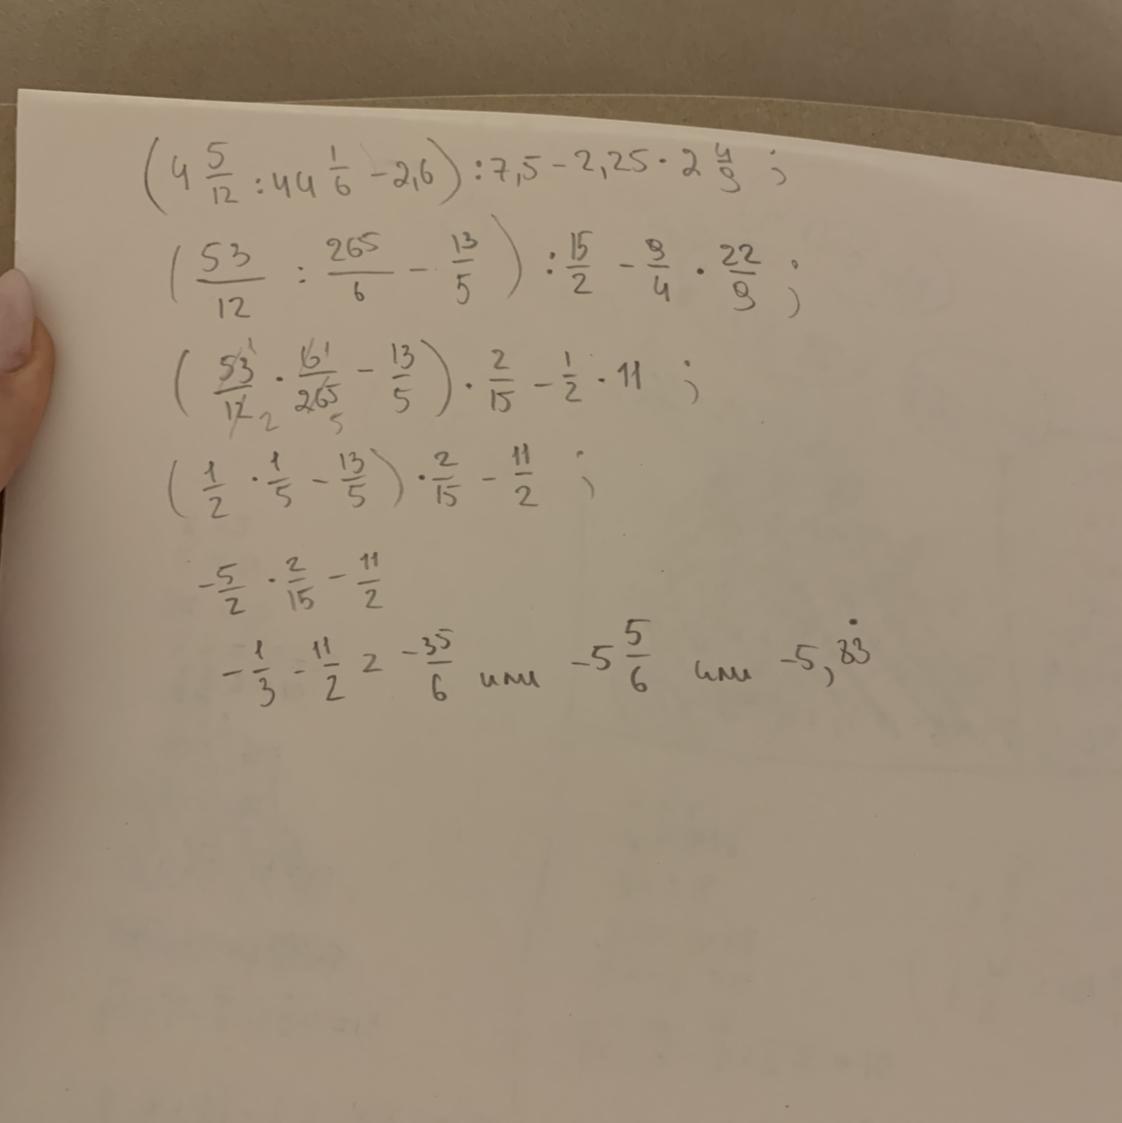 (4 5/12 : 44 1/6 - 2,6) : 7,5 - 2,25 · 2 4/9 ;
(53/12 : 265/6 - 13/5) : 15/2 - 9/4 · 22/9 ;
(53 1/12 2 · 6 1/265 5 - 13/5) · 2/15 - 1/2 · 11 ;
(1/2 · 1/5 - 13/5) · 2/15 - 11/2 ;
-5/2 · 2/15 - 11/2
-1/3 - 11/2 = -35/6 или -5 5/6 или -5,83̇